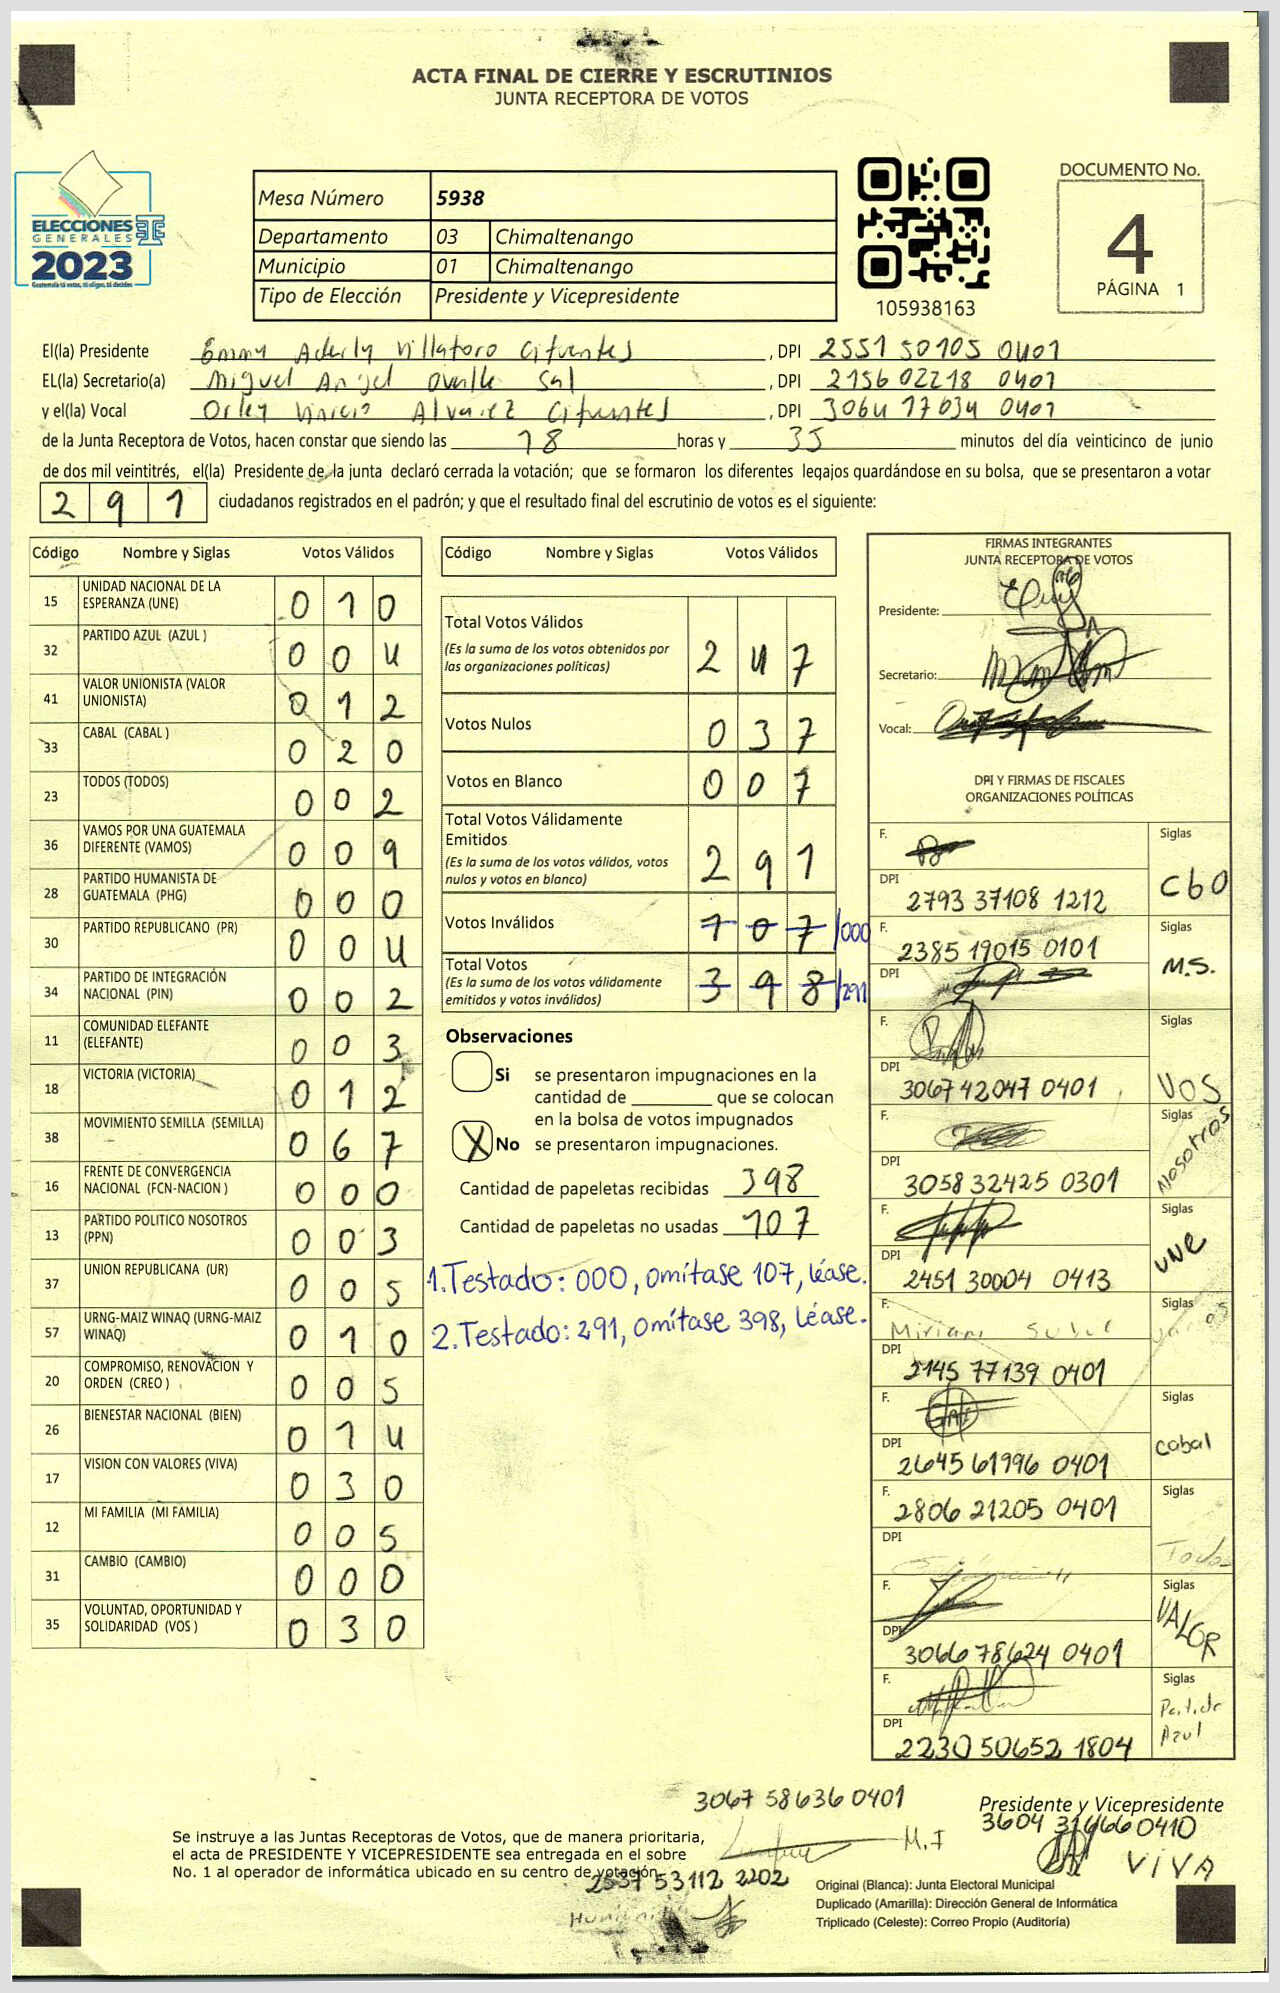 ACTA FINAL DE CIERRE Y ESCRUTINIOS
JUNTA RECEPTORA DE VOTOS
ELECCIONES
GENERALES
2023
Guatemala tú votas, tú eliges, tú decides
Mesa Número 5938
Departamento 03 Chimaltenango
Municipio 01 Chimaltenango
Tipo de Elección Presidente y Vicepresidente
105938163
DOCUMENTO No.
4
PÁGINA 1
El(la) Presidente Emmy Aderly Villatoro Cifuentes, DPI 2551 50105 0401
EL(la) Secretario(a) Miguel Angel Ovalle Sal, DPI 2156 02218 0401
y el(la) Vocal Orley Vinicio Alvarez Cifuentes, DPI 3064 17034 0401
de la Junta Receptora de Votos, hacen constar que siendo las 18 horas y 35 minutos del día veinticinco de junio
de dos mil veintitrés, el(la) Presidente de la junta declaró cerrada la votación; que se formaron los diferentes legajos guardándose en su bolsa, que se presentaron a votar
291 ciudadanos registrados en el padrón; y que el resultado final del escrutinio de votos es el siguiente:
Código Nombre y Siglas Votos Válidos
15 UNIDAD NACIONAL DE LA ESPERANZA (UNE) 010
32 PARTIDO AZUL (AZUL ) 004
41 VALOR UNIONISTA (VALOR UNIONISTA) 012
33 CABAL (CABAL ) 020
23 TODOS (TODOS) 002
36 VAMOS POR UNA GUATEMALA DIFERENTE (VAMOS) 009
28 PARTIDO HUMANISTA DE GUATEMALA (PHG) 000
30 PARTIDO REPUBLICANO (PR) 004
34 PARTIDO DE INTEGRACIÓN NACIONAL (PIN) 002
11 COMUNIDAD ELEFANTE (ELEFANTE) 003
18 VICTORIA (VICTORIA) 012
38 MOVIMIENTO SEMILLA (SEMILLA) 067
16 FRENTE DE CONVERGENCIA NACIONAL (FCN-NACION ) 000
13 PARTIDO POLITICO NOSOTROS (PPN) 003
37 UNION REPUBLICANA (UR) 005
57 URNG-MAIZ WINAQ (URNG-MAIZ WINAQ) 010
20 COMPROMISO, RENOVACION Y ORDEN (CREO ) 005
26 BIENESTAR NACIONAL (BIEN) 014
17 VISION CON VALORES (VIVA) 030
12 MI FAMILIA (MI FAMILIA) 005
31 CAMBIO (CAMBIO) 000
35 VOLUNTAD, OPORTUNIDAD Y SOLIDARIDAD (VOS ) 030
Código Nombre y Siglas Votos Válidos
Total Votos Válidos 247
(Es la suma de los votos obtenidos por
las organizaciones políticas)
Votos Nulos 037
Votos en Blanco 007
Total Votos Válidamente
Emitidos 291
(Es la suma de los votos válidos, votos
nulos y votos en blanco)
Votos Inválidos 107 /000
Total Votos 398 /291
(Es la suma de los votos válidamente
emitidos y votos inválidos)
Observaciones
Si se presentaron impugnaciones en la
cantidad de ________ que se colocan
en la bolsa de votos impugnados
X No se presentaron impugnaciones.
Cantidad de papeletas recibidas 398
Cantidad de papeletas no usadas 107
1. Testado: 000, omítase 107, léase.
2. Testado: 291, omítase 398, léase.
FIRMAS INTEGRANTES
JUNTA RECEPTORA DE VOTOS
Presidente:
Secretario:
Vocal:
DPI Y FIRMAS DE FISCALES
ORGANIZACIONES POLÍTICAS
F. Siglas
DPI 2793 37108 1212 CbO
F. 2385 19015 0101 Siglas
DPI M.S.
F. Siglas
DPI 3067 42047 0401 VOS
F. Siglas
DPI 3058 32425 0301 Nosotros
F. Siglas
DPI 2451 30004 0413 UNE
F. Miriam Siglas
DPI 2145 77139 0401
F. Siglas
DPI 2645 61996 0401 Cabal
F. 2806 21205 0401 Siglas
DPI Todos
F. Siglas
DPI 3066 78624 0401 VALOR
F. Siglas
DPI 2230 50652 1804 Partido Azul
3067 58636 0401
M.F
Presidente y Vicepresidente
3604 31666 0410
VIVA
Se instruye a las Juntas Receptoras de Votos, que de manera prioritaria,
el acta de PRESIDENTE Y VICEPRESIDENTE sea entregada en el sobre
No. 1 al operador de informática ubicado en su centro de votación.
2537 53112 2202
Original (Blanca): Junta Electoral Municipal
Duplicado (Amarilla): Dirección General de Informática
Triplicado (Celeste): Correo Propio (Auditoría)